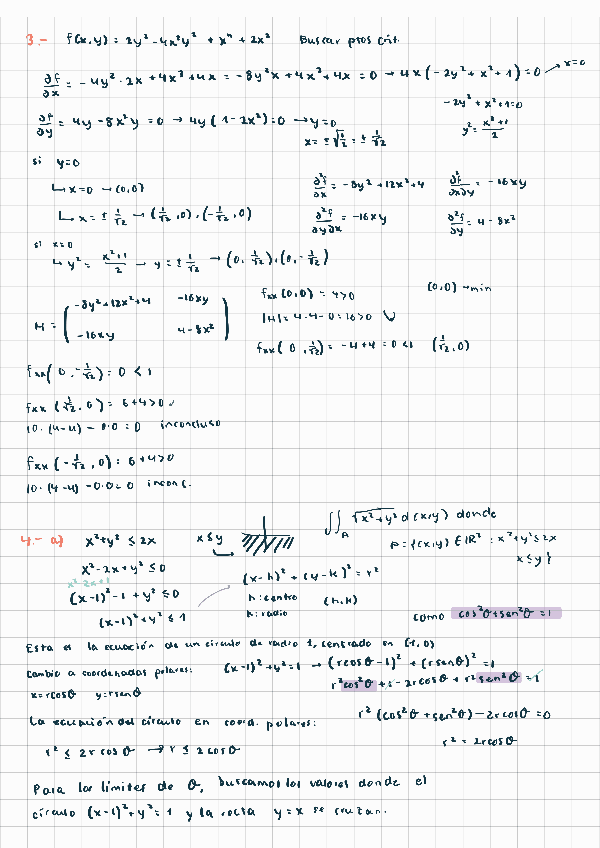 3.- f(x,y) = 2y² - 4x²y² + x⁴ + 2x² Buscar ptos crit.
∂f/∂x = -4y²·2x + 4x³ + 4x = -8y²x + 4x³ + 4x = 0 → 4x(-2y² + x² + 1) = 0 → x=0
-2y² + x² + 1 = 0
y² = (x²+1)/2
∂f/∂y = 4y - 8x²y = 0 → 4y(1 - 2x²) = 0 → y=0
x = ± √(1/2) = ± 1/√2
si y=0
↳ x=0 → (0,0)
↳ x = ± 1/√2 → (1/√2, 0), (-1/√2, 0)
∂²f/∂x = -8y² + 12x² + 4 ∂²f/∂x∂y = -16xy
∂²f/∂y∂x = -16xy ∂²f/∂y = 4 - 8x²
si x=0
↳ y² = (x²+1)/2 → y = ± 1/√2 → (0, 1/√2), (0, -1/√2)
H = ( -8y²+12x²+4 -16xy
-16xy 4-8x² )
fxx(0,0) = 4>0 (0,0) → min
|H| = 4·4-0 = 16>0
fxx(0, 1/√2) = -4+4 = 0 <1 (1/√2, 0)
fxx(0, -1/√2) = 0 < 1
fxx(1/√2, 0) = 6+4>0
10·(4-4) - 0·0 = 0 inconcluso
fxx(-1/√2, 0) = 6+4>0
10·(4-4) - 0·0 = 0 inconc.
4.- a) x²+y² ≤ 2x x≤y
∬_A √(x²+y²) d(x,y) donde
A = {(x,y) ∈ ℝ² : x²+y² ≤ 2x
x≤y}
x² - 2x + y² ≤ 0
x²-2x+1
(x-1)² - 1 + y² ≤ 0
(x-1)² + y² ≤ 1
(x-h)² + (y-k)² = r²
h: centro (h,k)
k: radio
como cos²θ + sen²θ = 1
Esta es la ecuación de un círculo de radio 1, centrado en (1,0)
Cambio a coordenadas polares: (x-1)² + y² = 1 → (rcosθ - 1)² + (rsenθ)² = 1
x = rcosθ y = rsenθ
r²cos²θ + 1 - 2rcosθ + r²sen²θ = 1
r²(cos²θ + sen²θ) - 2rcosθ = 0
r² = 2rcosθ
La ecuación del círculo en coord. polares:
r² ≤ 2r cosθ → r ≤ 2cosθ
Para los límites de θ, buscamos los valores donde el
círculo (x-1)² + y² = 1 y la recta y = x se cruzan.